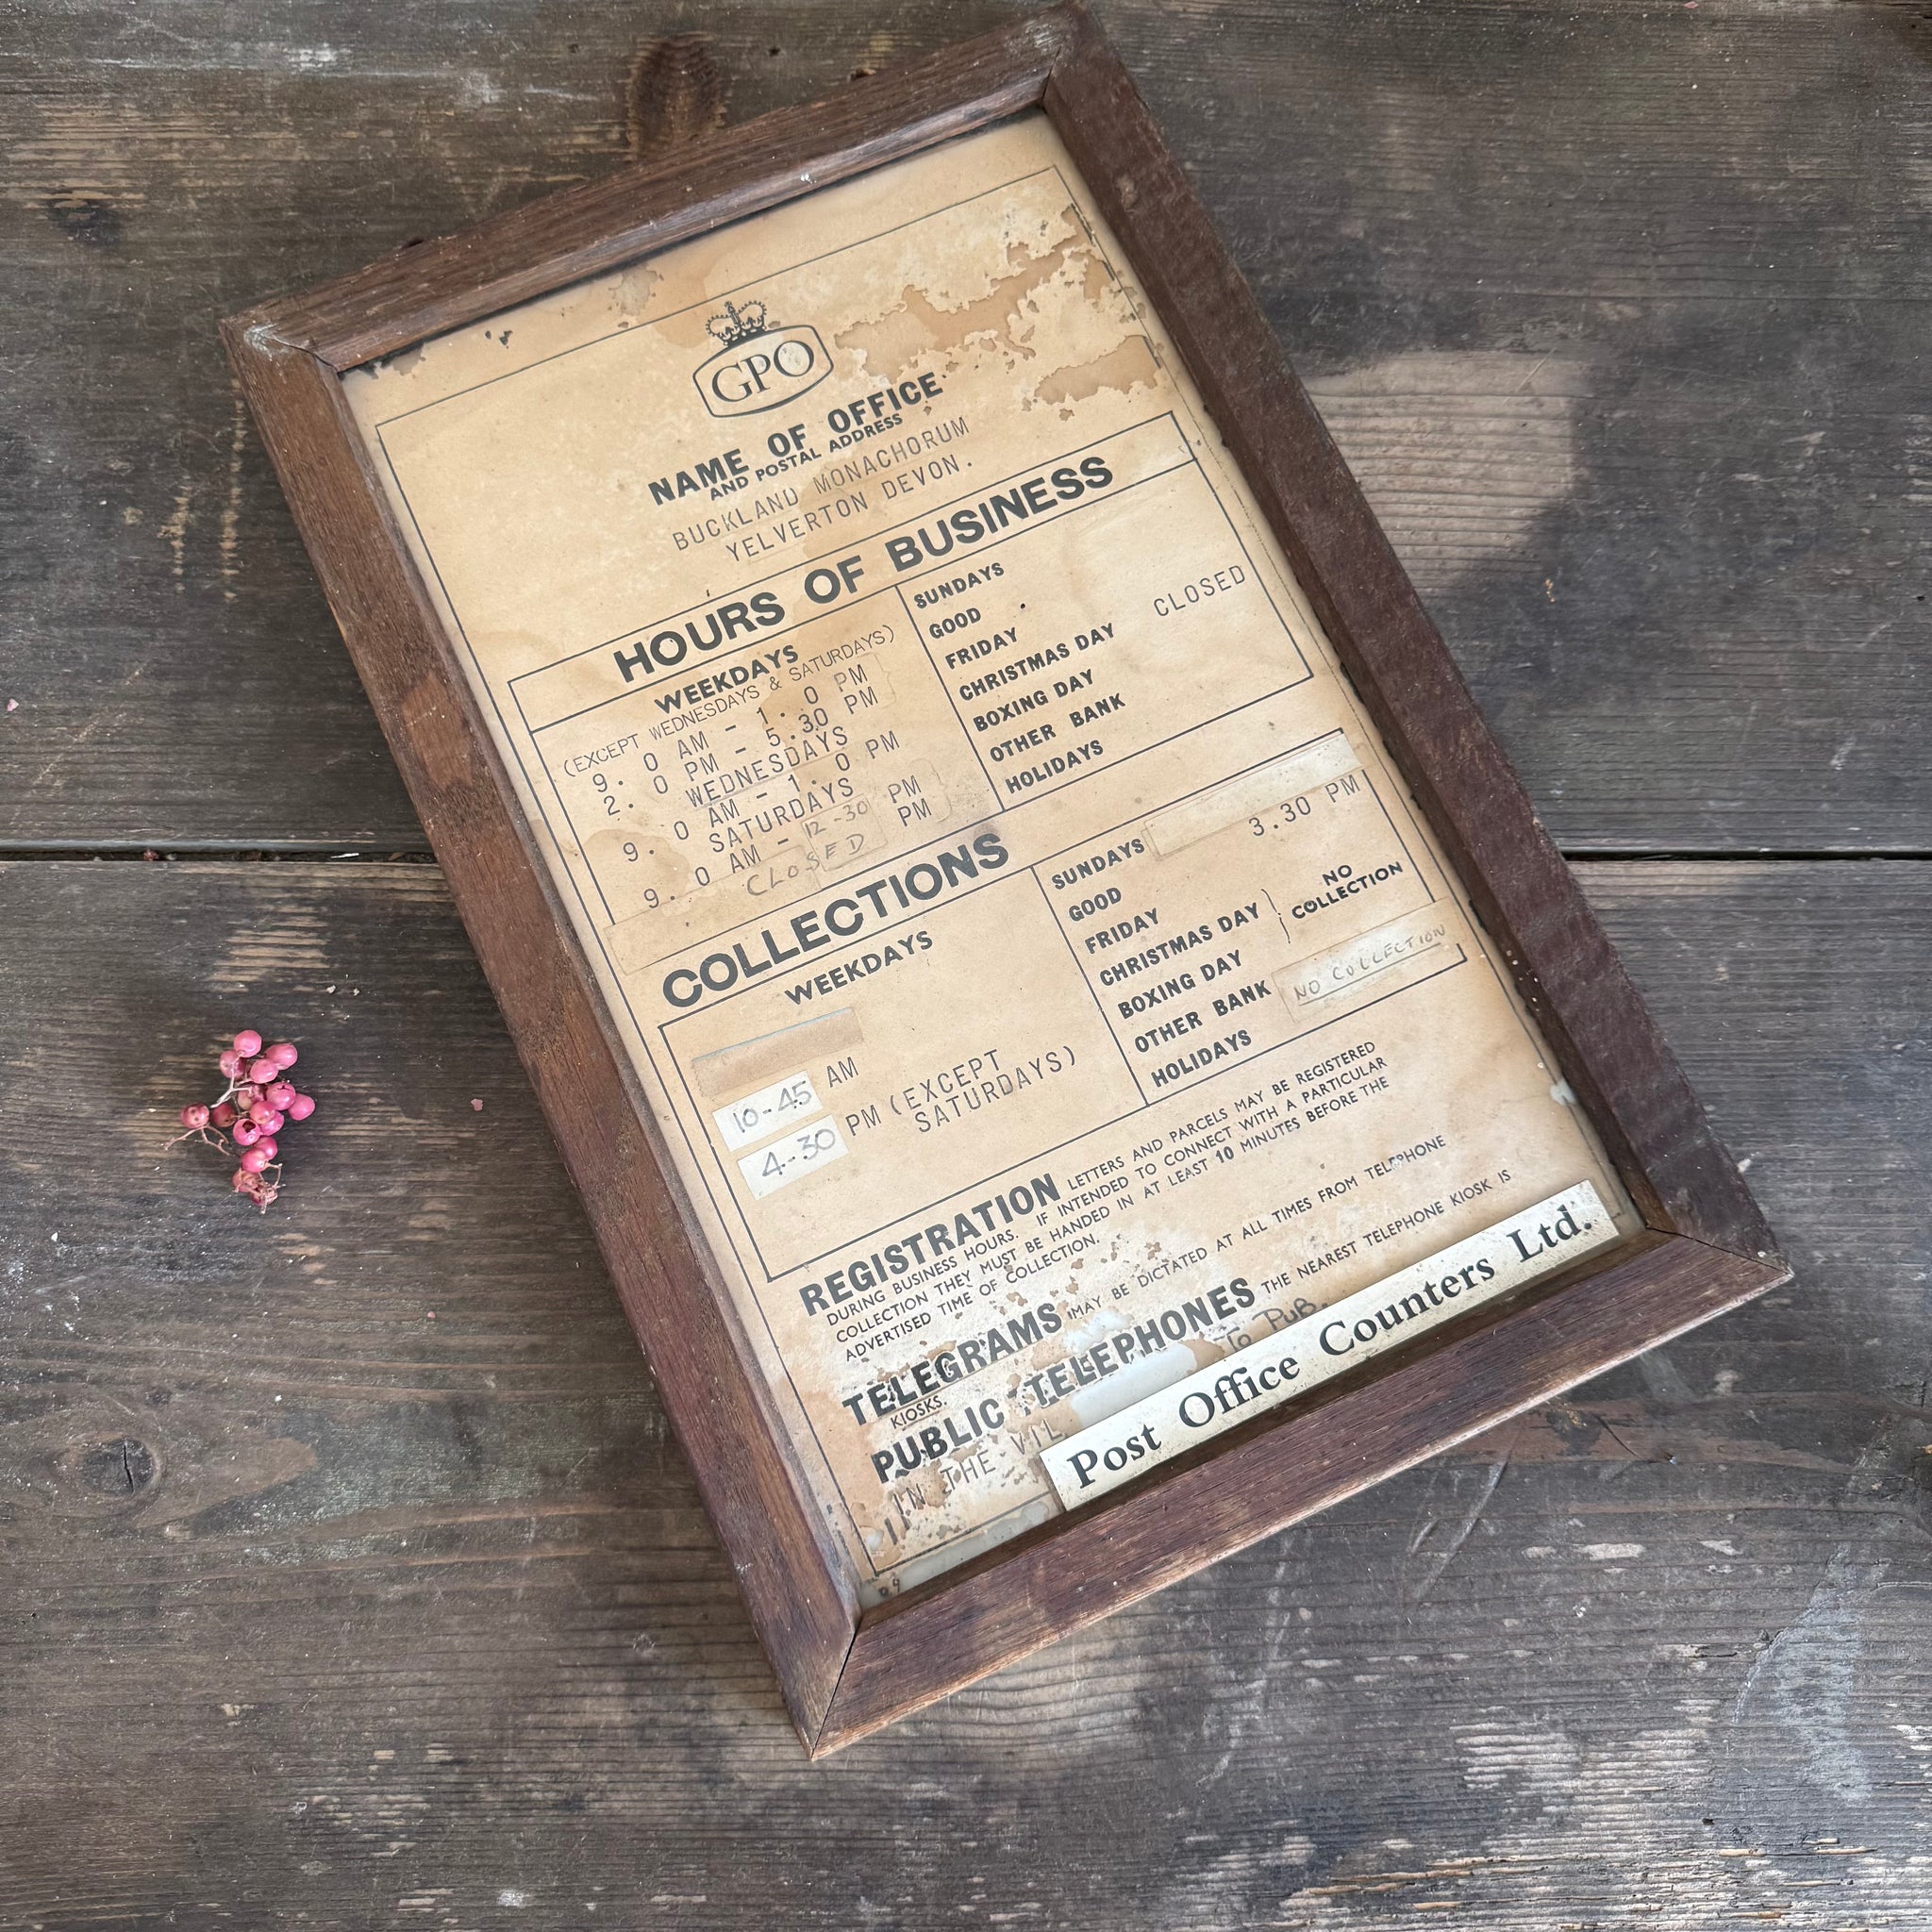 GPO
NAME OF OFFICE
AND POSTAL ADDRESS
BUCKLAND MONACHORUM
YELVERTON DEVON.
HOURS OF BUSINESS
WEEKDAYS
(EXCEPT WEDNESDAYS & SATURDAYS)
9. 0 AM - 1. 0 PM
2. 0 PM - 5.30 PM
WEDNESDAYS
9. 0 AM - 1. 0 PM
SATURDAYS
9. 0 AM - 12-30 PM
CLOSED PM
SUNDAYS
GOOD
FRIDAY
CHRISTMAS DAY
BOXING DAY
OTHER BANK
HOLIDAYS
CLOSED
COLLECTIONS
WEEKDAYS
10-45 AM
4-30 PM (EXCEPT
SATURDAYS)
SUNDAYS 3.30 PM
GOOD
FRIDAY
CHRISTMAS DAY
BOXING DAY
NO
COLLECTION
OTHER BANK
HOLIDAYS
NO COLLECTION
REGISTRATION LETTERS AND PARCELS MAY BE REGISTERED
DURING BUSINESS HOURS. IF INTENDED TO CONNECT WITH A PARTICULAR
COLLECTION THEY MUST BE HANDED IN AT LEAST 10 MINUTES BEFORE THE
ADVERTISED TIME OF COLLECTION.
TELEGRAMS MAY BE DICTATED AT ALL TIMES FROM TELEPHONE
KIOSKS.
PUBLIC TELEPHONES THE NEAREST TELEPHONE KIOSK IS
IN THE VIL
To PUB.
Post Office Counters Ltd.